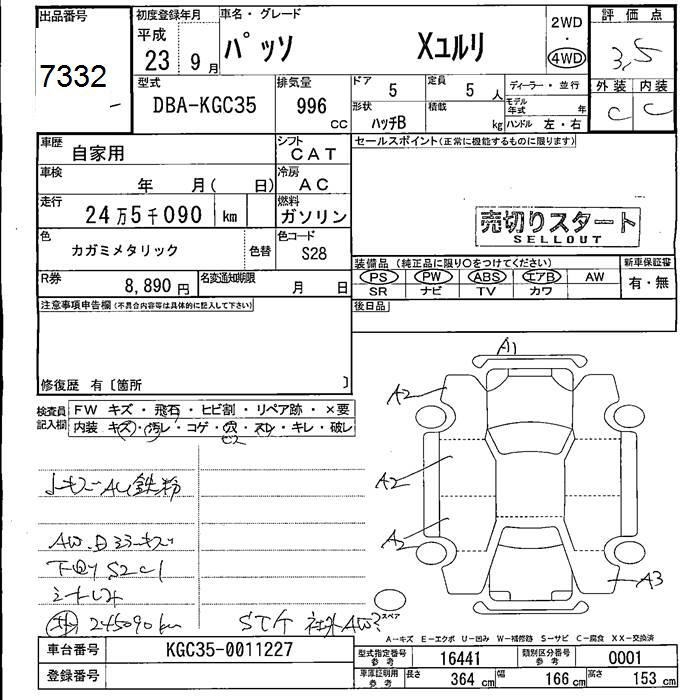 出品番号 初度登録年月 車名・グレード 2WD 評価点
7332 平成 23 9月 パッソ Xユルリ ・ 4WD 3.5
型式 排気量 ドア 5 定員 5人 ディーラー・並行 外装 内装
DBA-KGC35 996 CC 形状 ハッチB 積載 kg モデル年式 年 C C
ハンドル 左・右
車歴 自家用 シフト CAT セールスポイント(正常に機能するものに限ります)
車検 年 月( 日) 冷房 AC
走行 24万5千090 km 燃料 ガソリン
売切りスタート
SELLOUT
色 カガミメタリック 色替 色コード S28
装備品(純正品に限り○をつけてください) 新車保証書
PS PW ABS エアB AW 有・無
SR ナビ TV カワ
R券 8,890円 名変通知期限 月 日
後日品
注意事項申告欄(不具合内容等は具体的に記入して下さい)
修復歴 有〔箇所 〕
検査員記入欄 FW キズ・飛石・ヒビ割・リペア跡・×要
内装 キズ・汚レ・コゲ・穴・スレ・キレ・破レ
A1
A2
A2
A2
A3
鉄粉
下回りS2C1
245090km
スペア
A-キズ E-エクボ U-凹み W-補修跡 S-サビ C-腐食 XX-交換済
車台番号 KGC35-0011227
型式指定番号 参考 16441 類別区分番号 参考 0001
登録番号
車庫証明用 参考 長さ 364cm 幅 166cm 高さ 153cm